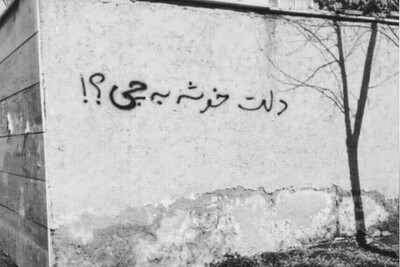 دلت خوشه به چی؟!